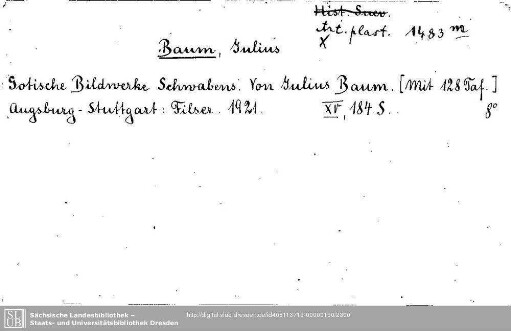 Hist. Suev.
Art. plast. 1483 m
X
Baum, Julius
Gotische Bildwerke Schwabens. Von Julius Baum. [Mit 128 Taf.]
Augsburg-Stuttgart: Filser. 1921. XV, 184 S. 8°
SLUB
Sächsische Landesbibliothek –
Staats- und Universitätsbibliothek Dresden